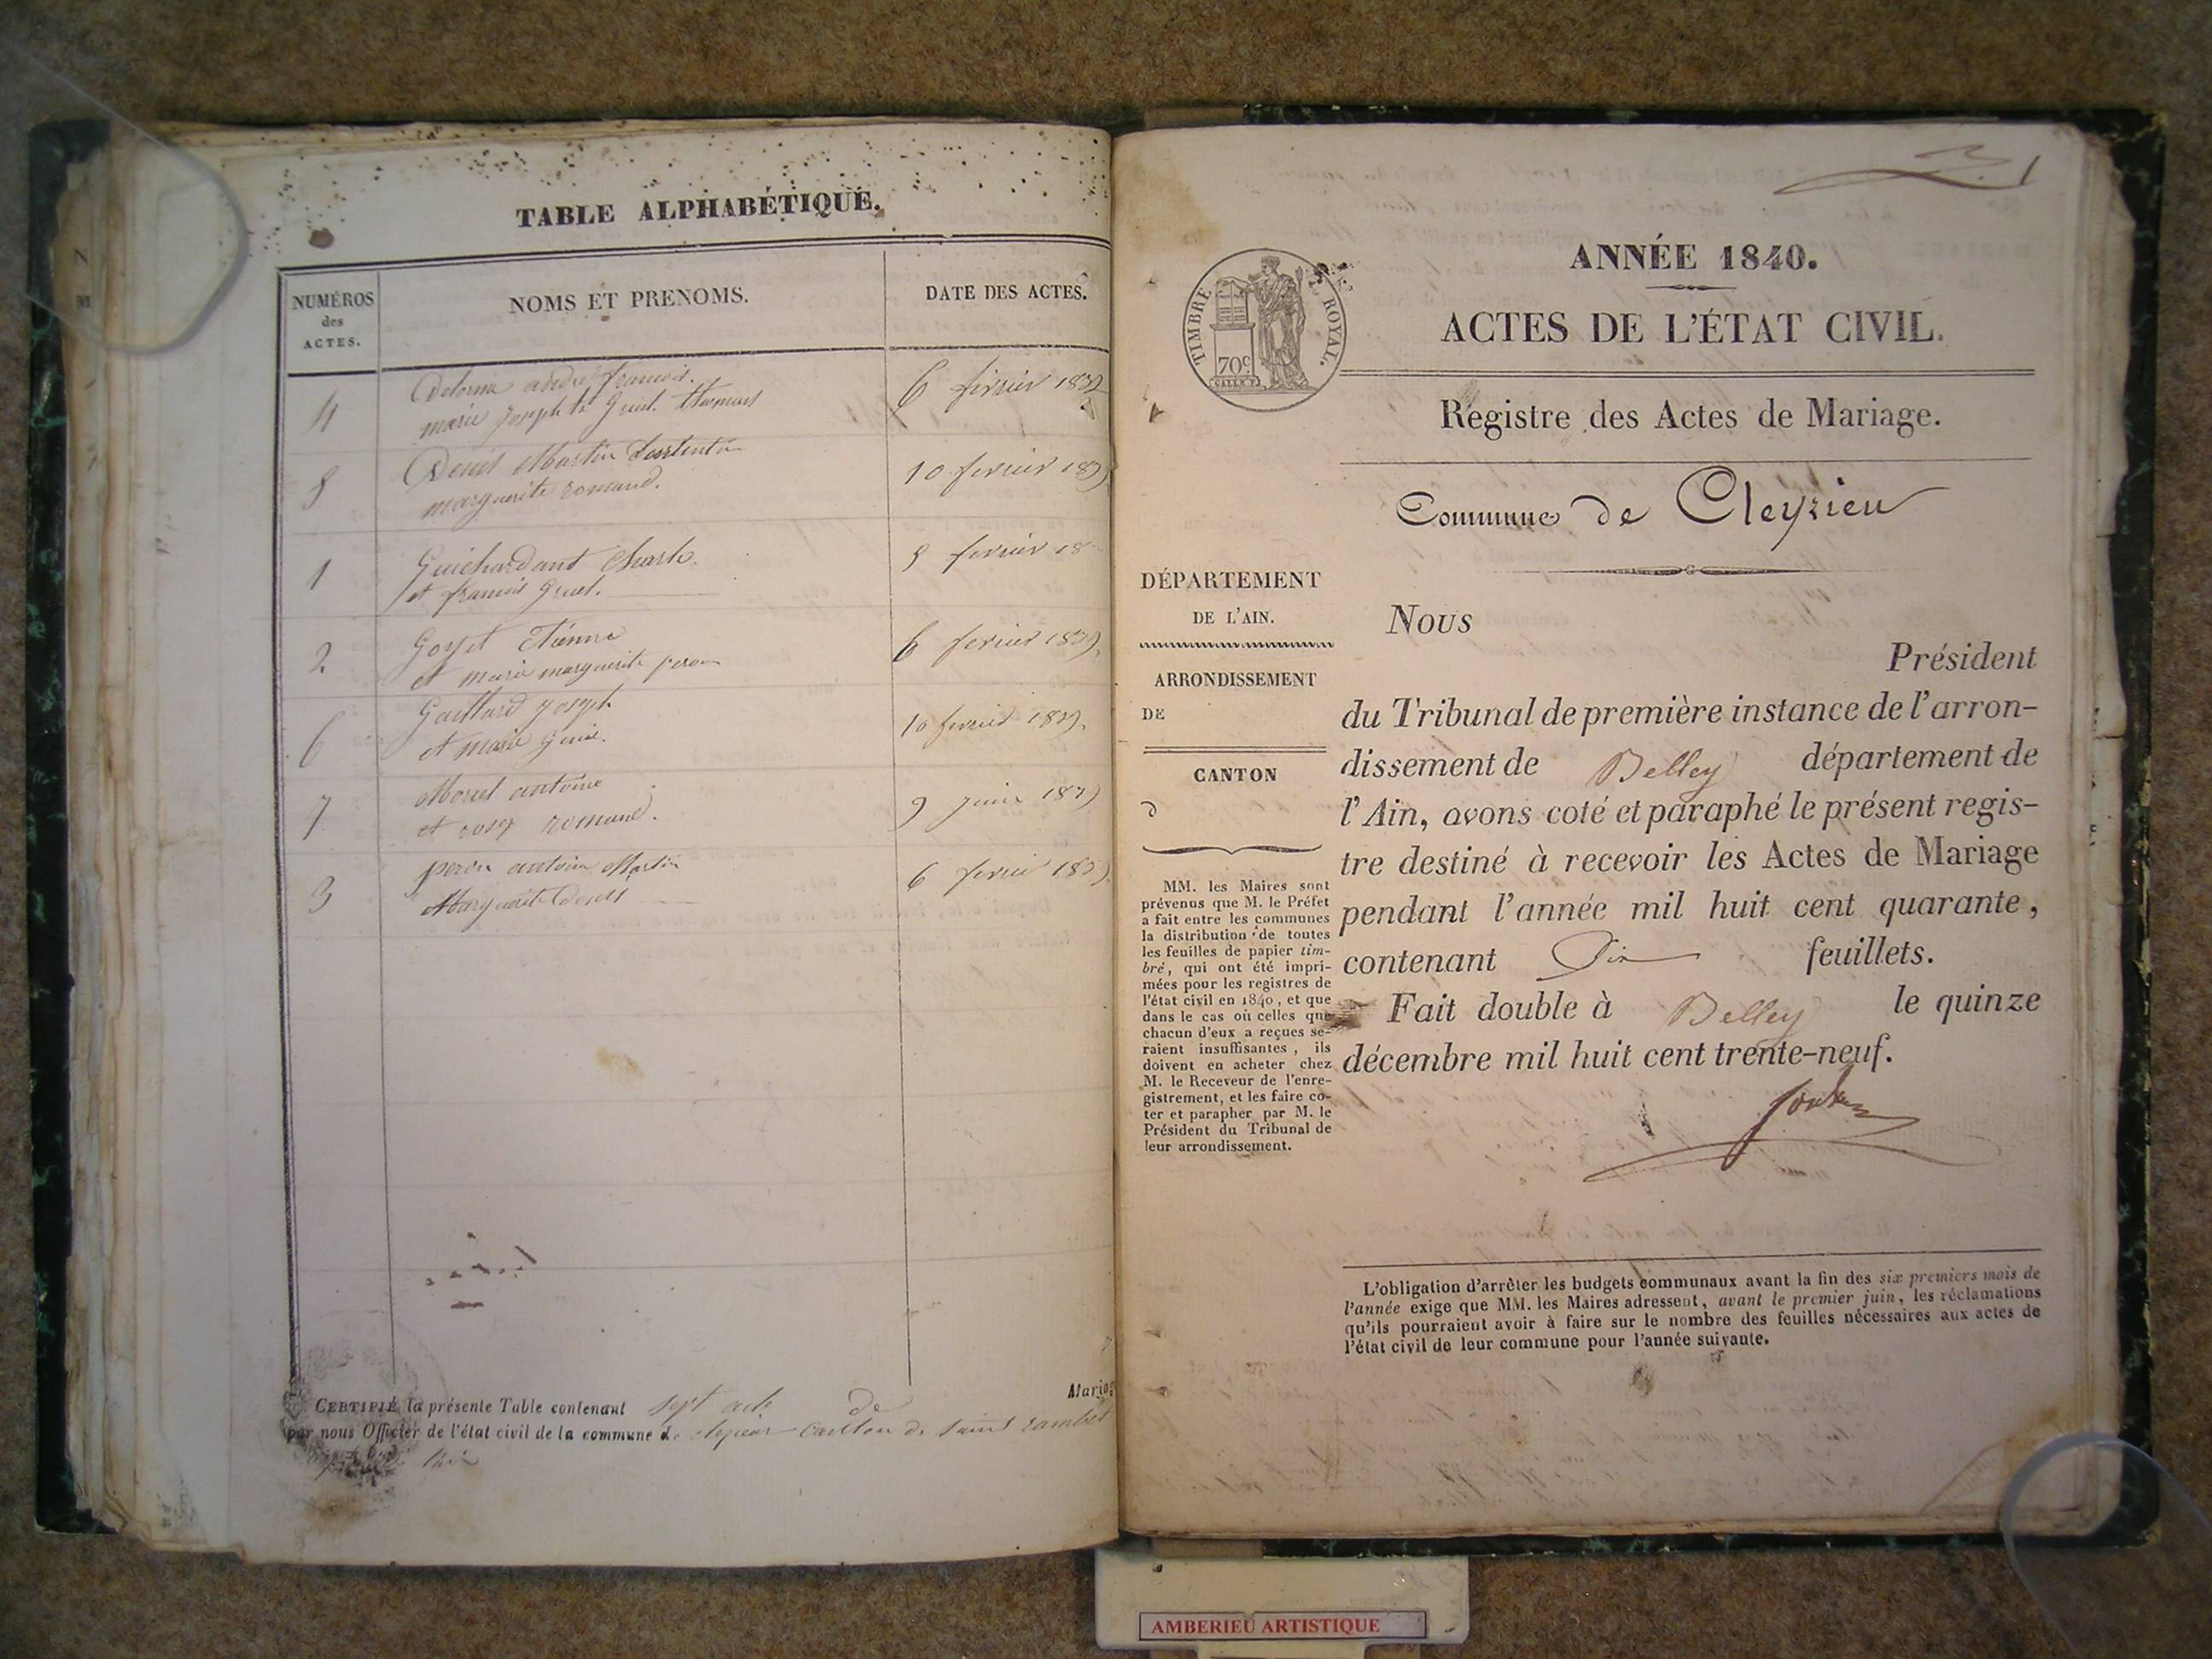 TABLE ALPHABÉTIQUE.
NUMÉROS
des
ACTES.
NOMS ET PRENOMS.
DATE DES ACTES.
4
Delorme andré françois.
marie Josephte Thomas
6 février 1839
10 fevrier 1839
Denis Martin
marguerite romand.
1
Guichardant Charle.
et françois
5 fevrier 18
2
Goyet Etienne
et marie marguerite peron
6 fevrier 1839.
6
Gaillard joseph
et marie
10 fevrier 1839.
7
Morel antoine
et romand.
9 Juin 1839
3
peron antoine Martin
Marguerite Denis
6 fevrier 1839.
CERTIFIÉ la présente Table contenant sept acte de Mariag
par nous Officier de l'état civil de la commune de cleyzieu canton de saint rambert
l'ain
1
ANNÉE 1840.
TIMBRE ROYAL.
70c
ACTES DE L'ÉTAT CIVIL.
Registre des Actes de Mariage.
Commune de Cleyzieu
DÉPARTEMENT
DE L'AIN.
ARRONDISSEMENT
DE
CANTON
d
MM. les Maires sont
prévenus que M. le Préfet
a fait entre les communes
la distribution de toutes
les feuilles de papier tim-
bré, qui ont été impri-
mées pour les registres de
l'état civil en 1840, et que
dans le cas où celles que
chacun d'eux a reçues se-
raient insuffisantes, ils
doivent en acheter chez
M. le Receveur de l'enre-
gistrement, et les faire co-
ter et parapher par M. le
Président du Tribunal de
leur arrondissement.
Nous
Président
du Tribunal de première instance de l'arron-
dissement de Belley département de
l'Ain, avons coté et paraphé le présent regis-
tre destiné à recevoir les Actes de Mariage
pendant l'année mil huit cent quarante,
contenant Dix feuillets.
Fait double à Belley le quinze
décembre mil huit cent trente-neuf.
L'obligation d'arrêter les budgets communaux avant la fin des six premiers mois de
l'année exige que MM. les Maires adressent, avant le premier juin, les réclamations
qu'ils pourraient avoir à faire sur le nombre des feuilles nécessaires aux actes de
l'état civil de leur commune pour l'année suivante.
AMBERIEU ARTISTIQUE